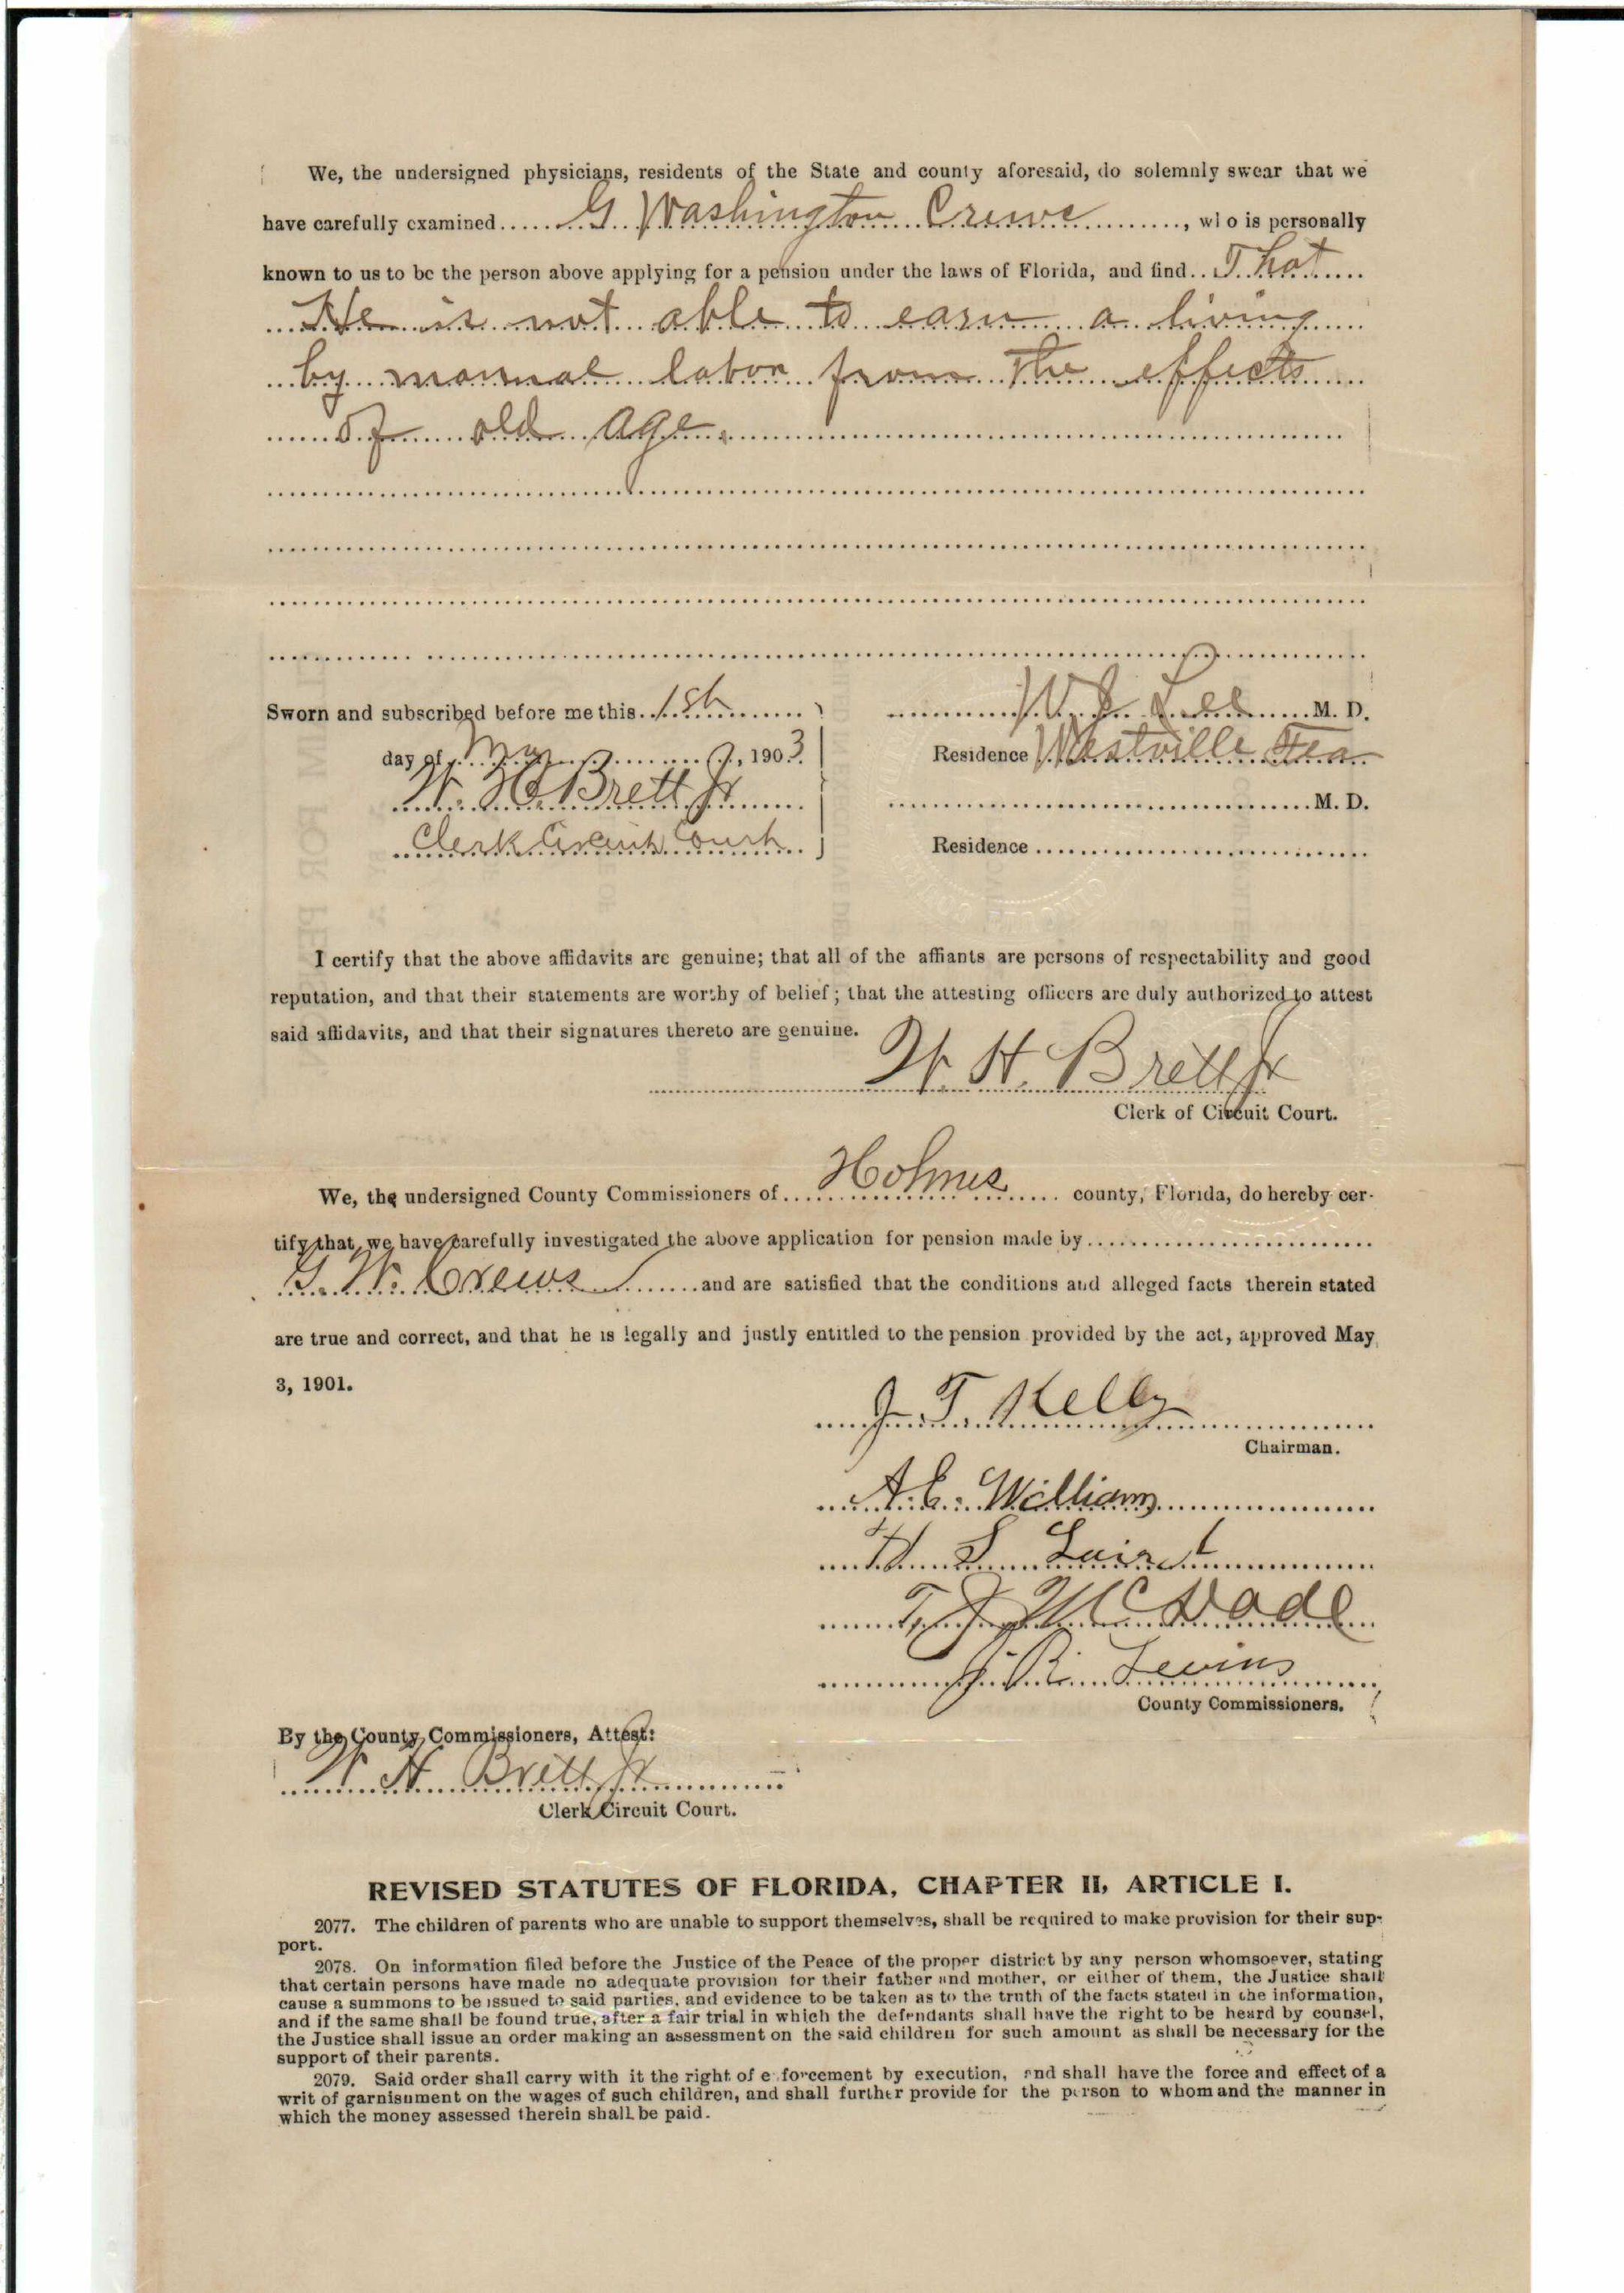 We, the undersigned physicians, residents of the State and county aforesaid, do solemnly swear that we
have carefully examined G Washington Crews, who is personally
known to us to be the person above applying for a pension under the laws of Florida, and find That
He is not able to earn a living
by manual labor from the effects
of old age.
Sworn and subscribed before me this 1st
day of May, 1903
W. H. Brett Jr
Clerk Circuit Court
W J Lee M. D.
Residence Westville Fla
M. D.
Residence
I certify that the above affidavits are genuine; that all of the affiants are persons of respectability and good
reputation, and that their statements are worthy of belief; that the attesting officers are duly authorized to attest
said affidavits, and that their signatures thereto are genuine.
W. H. Brett Jr
Clerk of Circuit Court.
We, the undersigned County Commissioners of Holmes county, Florida, do hereby cer-
tify that we have carefully investigated the above application for pension made by
G. W. Crews and are satisfied that the conditions and alleged facts therein stated
are true and correct, and that he is legally and justly entitled to the pension provided by the act, approved May
3, 1901.
J. T. Kelly
Chairman.
A. E. Williams
H S
T. J. McDade
J. R. Levins
County Commissioners.
By the County Commissioners, Attest:
W H Brett Jr
Clerk Circuit Court.
REVISED STATUTES OF FLORIDA, CHAPTER II, ARTICLE I.
2077. The children of parents who are unable to support themselves, shall be required to make provision for their sup-
port.
2078. On information filed before the Justice of the Peace of the proper district by any person whomsoever, stating
that certain persons have made no adequate provision for their father and mother, or either of them, the Justice shall
cause a summons to be issued to said parties, and evidence to be taken as to the truth of the facts stated in the information,
and if the same shall be found true, after a fair trial in which the defendants shall have the right to be heard by counsel,
the Justice shall issue an order making an assessment on the said children for such amount as shall be necessary for the
support of their parents.
2079. Said order shall carry with it the right of e forcement by execution, and shall have the force and effect of a
writ of garnishment on the wages of such children, and shall further provide for the person to whom and the manner in
which the money assessed therein shall be paid.